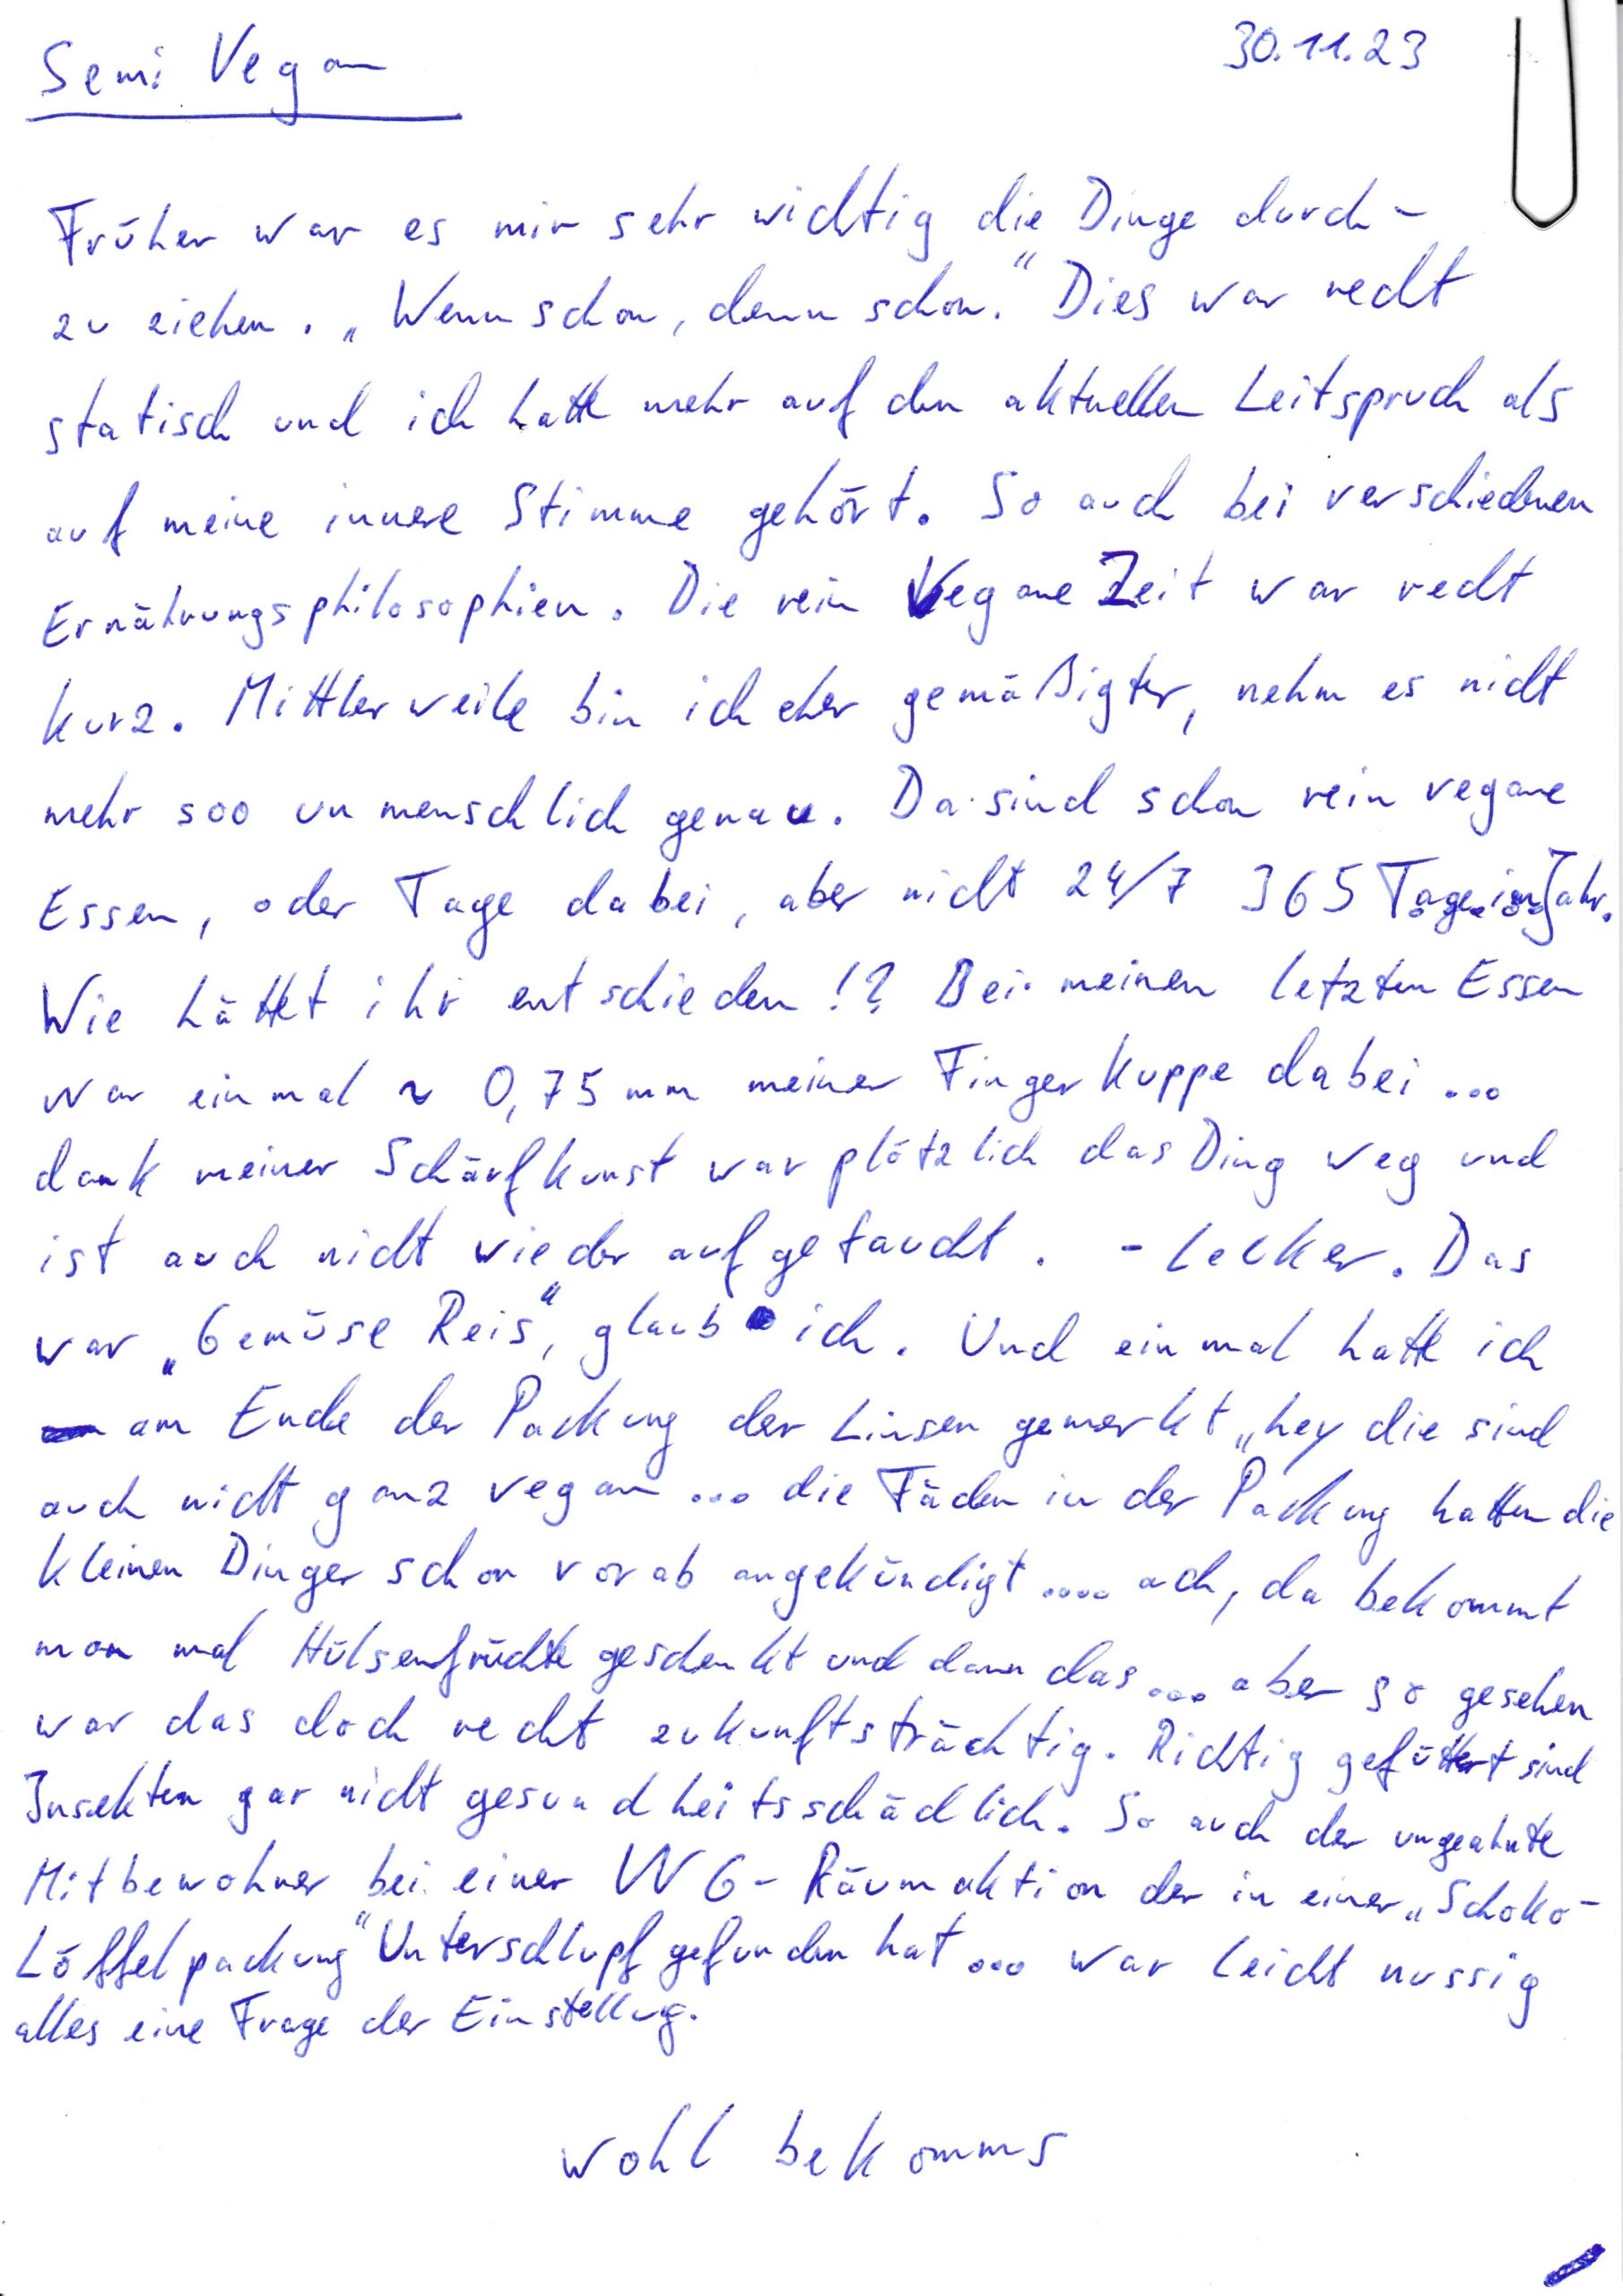 Semi Vegan
30.11.23
Früher war es mir sehr wichtig die Dinge durch-
zu ziehen. „Wenn schon, denn schon.“ Dies war recht
statisch und ich hatte mehr auf den aktuellen Leitspruch als
auf meine innere Stimme gehört. So auch bei verschiedenen
Ernährungsphilosophien. Die rein Vegane Zeit war recht
kurz. Mittlerweile bin ich eher gemäßigter, nehm es nicht
mehr soo unmenschlich genau. Da sind schon rein vegane
Essen, oder Tage dabei, aber nicht 24/7 365 Tage im Jahr.
Wie hättet ihr entschieden!? Bei meinen letzten Essen
war einmal ~ 0,75 mm meiner Fingerkuppe dabei ...
dank meiner Schärfkunst war plötzlich das Ding weg und
ist auch nicht wieder aufgetaucht. - Lecker. Das
war „Gemüse Reis“, glaub ich. Und einmal hatte ich
am Ende der Packung der Linsen gemerkt „hey die sind
auch nicht ganz vegan ... die Fäden in der Packung hatten die
kleinen Dinger schon vorab angekündigt .... ach, da bekommt
man mal Hülsenfrüchte geschenkt und dann das ... aber so gesehen
war das doch recht zukunftsträchtig. Richtig gefüttert sind
Insekten gar nicht gesundheitsschädlich. So auch der ungeahnte
Mitbewohner bei einer WG-Räumaktion der in einer „Schoko-
Löffelpackung“ Unterschlupf gefunden hat ... war leicht nussig
alles eine Frage der Einstellug.
wohl bekomms